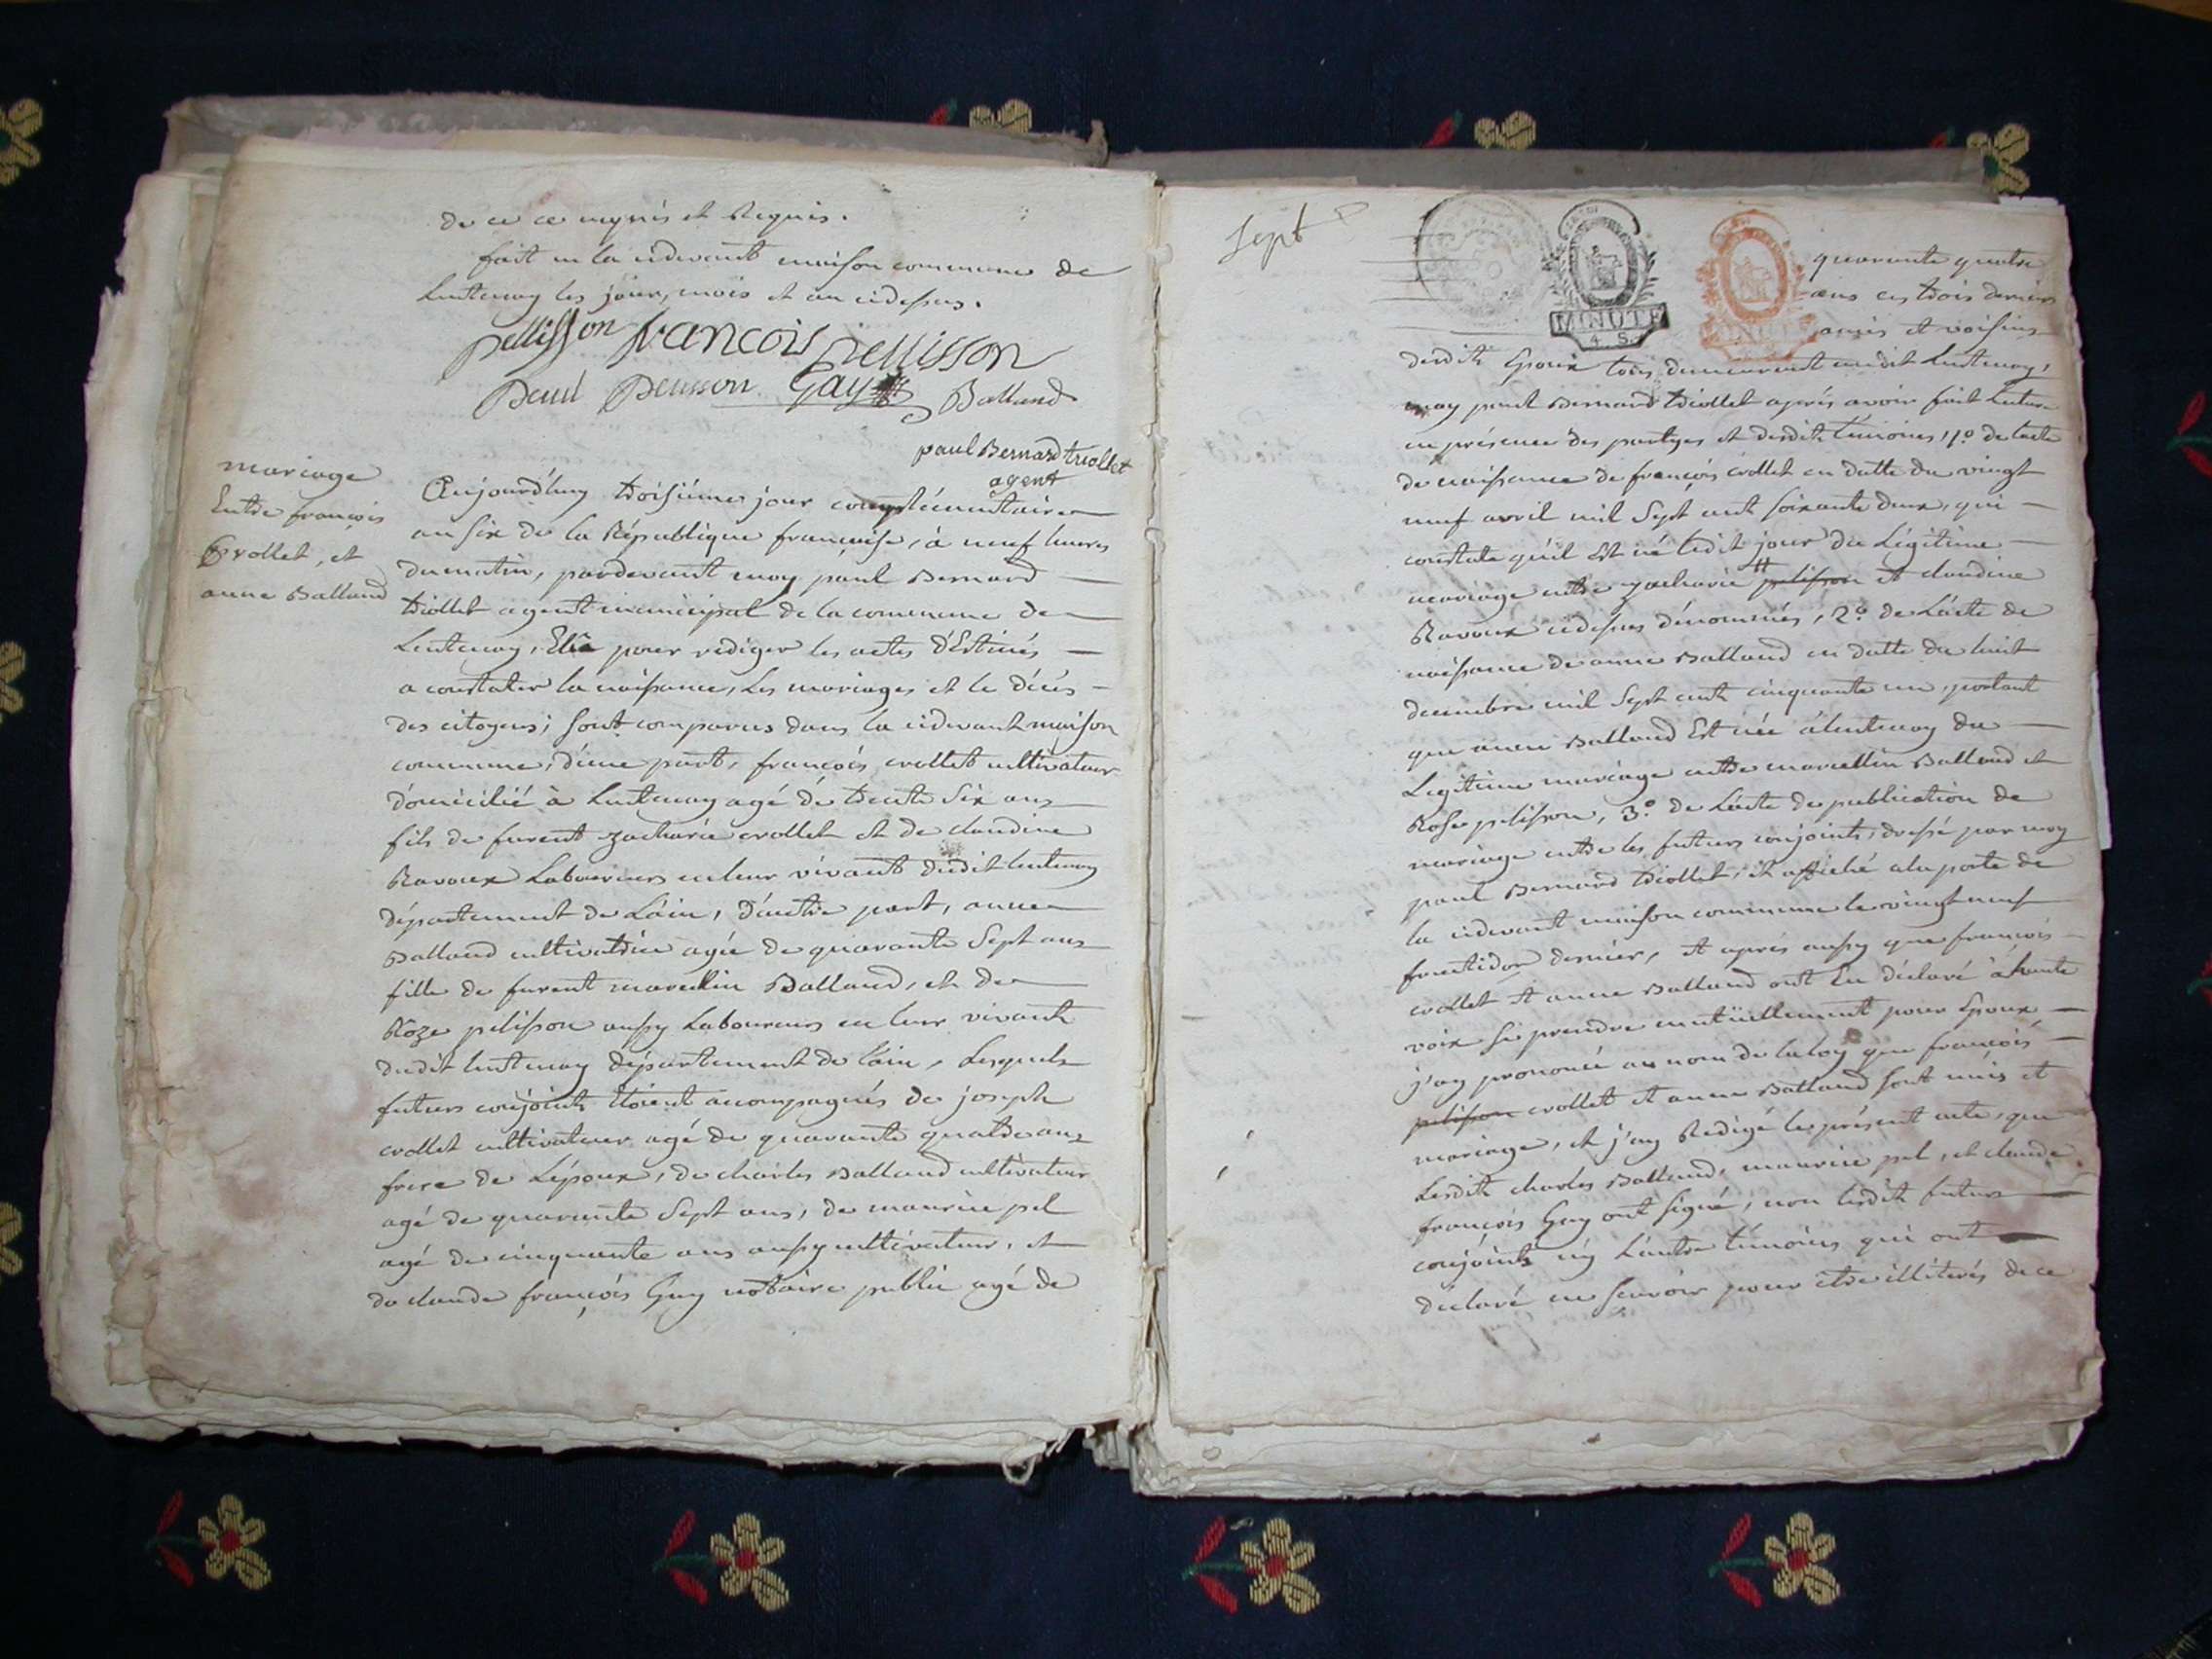 de ce enquis et Requis.
fait en la cidevant maison commune de
Lentenay les jour, mois et an cidessus.
pellisson francois pellisson
Paul penisson Gay Balland
paul Bernard triollet
agent
mariage
Entre françois
Crollet, et
anne Balland
Aujourd'huy troisiéme jour complémentaire
an six de la République française, à neuf heures
du matin, pardevant moy paul Bernard
triollet agent municipal de la commune de
Lentenay, Elû pour rediger les actes d'Estinés
a constater la naissance, les mariages et le décès
des citoyens; sont comparus dans la cidevant maison
commune, d'une part, françois crollet cultivateur
domicilié à Lentenay agé de trente six ans
fils de furent zacharie crollet et de claudine
Ravoux Laboureurs en leur vivant dudit lentenay
département de L'ain, d'autre part, anne
Balland cultivatrice agée de quarante Sept ans
fille de furent marcellin Balland, et de
Roze pelisson aussy Laboureurs en leur vivants
dudit lentenay département de l'ain, Lesquels
futurs conjoints étoient acompagnés de joseph
crollet cultivateur agé de quarante quatre ans
frere de L'époux, de charles Balland cultivateur
agé de quarante Sept ans, de maurice pel
agé de cinquante ans aussy cultivateur, et
de claude françois Gay notaire public agé de
Sept
MINUTE
4. S.
MINUTE
quarante quatre
ans ces trois derniers
amis et voisins
desdits Epoux tous demeurant audit Lentenay,
moy paul Bernard triollet aprés avoir fait Lecture
en présence des partyes et desdits témoins, 1.º de l'acte
de naissance de françois crollet en datte du vingt
neuf avril mil Sept cent soixante deux, qui
constate qu'il Est né ledit jour du Légitime
mariage entre zacharie pelisson et claudine
Ravoux cidessus dénommés, 2.º de L'acte de
naissance de anne Balland en datte du huit
decembre mil Sept cent cinquante un, portant
que anne Balland Est née a lentenay du
Legitime mariage entre marcellin Balland et
Rose pelisson, 3.º de L'acte de publication de
mariage entre les futurs conjoints, dressé par moy
paul Bernard triollet, et affiché a la porte de
la cidevant maison commune le vingt neuf
fructidor dernier, et aprés aussy que françois
crollet et anne Balland ont Eu déclaré à haute
voix se prendre mutüellement pour Epoux
j'ay prononcé au nom de la loy que françois
pelisson crollet et anne Balland sont unis et
mariage, et j'ay Redigé le présent acte, que
Lesdits charles Balland, maurice pel, et claude
françois Gay ont signé, non lesdits futurs
conjoints ny L'autre témoins qui ont
déclaré ne scavoir pour être illiterés de ce